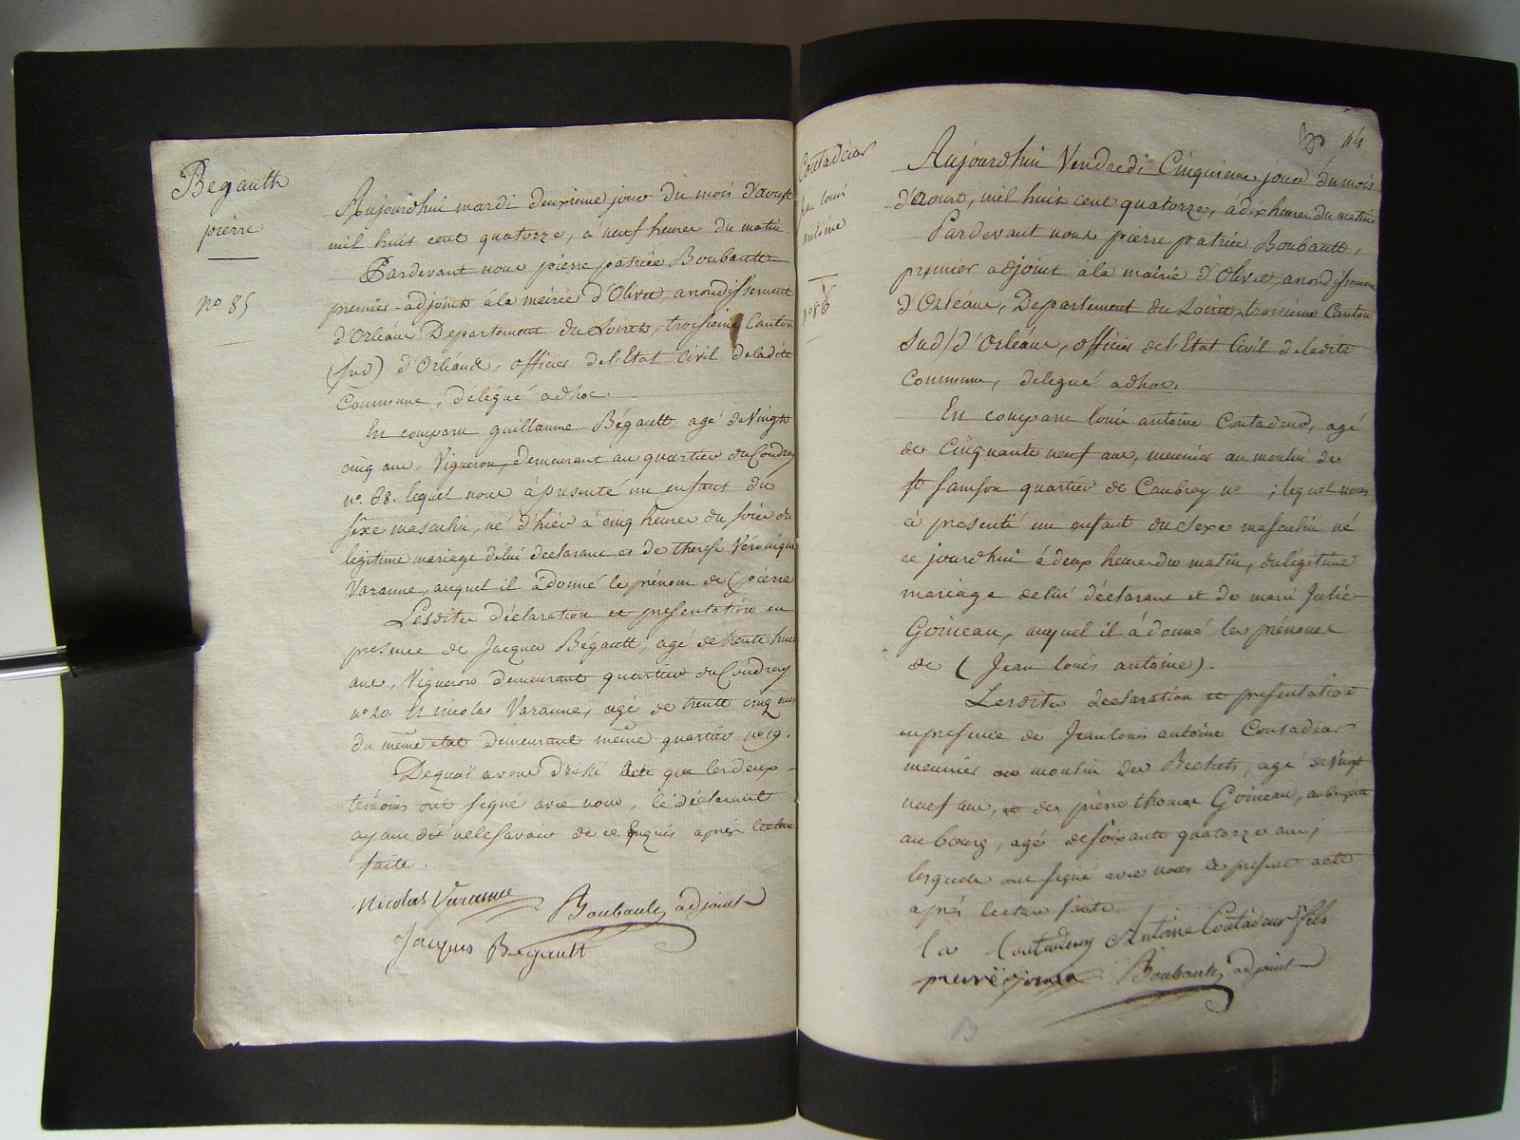 Begault
pierre
no 85
Aujourdhui mardi deuxieme jour du mois d'aoust
mil huit cent quatorze, à neuf heures du matin
Pardevant nous pierre patrice Boubault
premier adjoint à la mairie d'Olivet, arrondissement
d'Orléans Departement du Loiret, troisieme Canton
(sud) d'Orléans, officier del'Etat Civil deladite
Commune, délégué adhoc.
En comparu guillaume Bégault agé de Vingt
cinq ans, Vigneron, demeurant au quartier du Coudray
no. 68. lequel nous à presenté un enfant du
sexe masculin, né d'hier à cinq heures du soir du
légitime mariage delui declarant et de therese Véronique
Varanne, auquel il àdonné le prénom de (pierre
Lesdites déclaration et presentation en
presence de Jacques Bégault, agé de trente huit
ans, Vigneron demeurant quartier du Coudray
no 20 et nicolas Varanne, agé de trente cinq ans
du même etat demeurant même quartier no 19.
Dequoi avons dressé acte que les deux
témoins ont signé avec nous, le déclarant
ayant dit nelesavoir de ce Enquis après lecture
faite.
Nicolas Varanne Boubault adjoint
Jacques Begault
44
Contadeur
Jean louis
antoine
no 86
Aujourdhui Vendredi Cinquieme jour du mois
d'aoust, mil huit cent quatorze, adix heures du matin
Pardevant nous pierre patrice Boubault,
premier adjoint àla mairie d'Olivet, arrondissement
d'Orléans, Departement du Loiret, troisieme Canton
Sud) d'Orléans, officier del'Etat Civil deladite
Commune, delegué adhoc.
En comparu louis antoine Contadeur, agé
de Cinquante neuf ans, meunier au moulin de
st samson quartier de Caubray no ; lequel nous
à presenté un enfant du sexe masculin né
ce jourdhui à deux heures du matin, du légitime
mariage delui déclarant et de marie Julie
Goineau, auquel il àdonné les prénoms
de (Jean louis antoine).
Lesdites déclaration et presentation
enpresence de Jean louis antoine Contadeur
meunier au moulin des Bechets, agé de Vingt
neuf ans, et de pierre thomas Goineau, aubergiste
au bourg, agé desoixante quatorze ans;
lesquels ont signé avec nous le present acte
après lecture faite.
la Contadeur Antoine Contadeur fils
pierre goineau Boubault adjoint